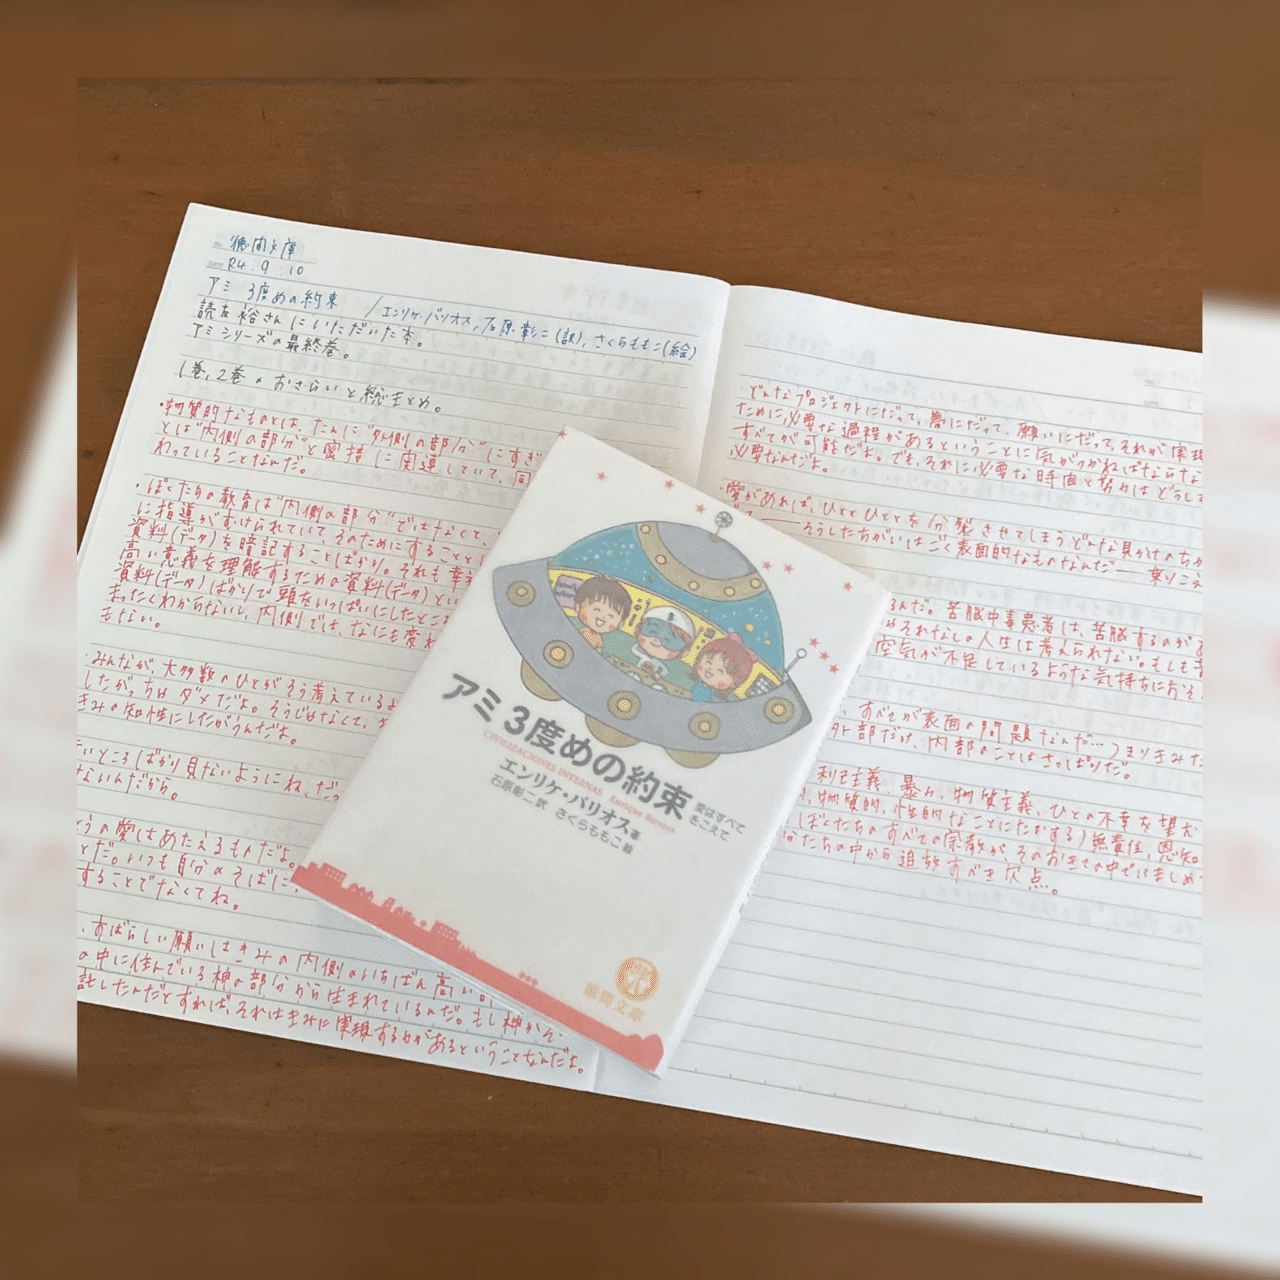 徳間文庫
R4. 9. 10
アミ 3度めの約束 /エンリケ・バリオス, 石原彰二(訳), さくらももこ(絵)
読友 裕さんにいただいた本。
アミシリーズの最終巻。
1巻, 2巻のおさらいと総まとめ。
・物質的なものとは、たんに“外側の部分”にすぎ
とは“内側の部分”と密接に関連していて、同
わっていることなんだ。
・ぼくたちの教育は“内側の部分”ではなくて、
に指導がむけられていて、そのためにすることと
資料(データ)を暗記することばかり。それも幸
高い意義を理解するための資料(データ)とい
資料(データ)ばかりで頭をいっぱいにしたとこ
まったくわからないし、内側では、なにも変わ
もない。
・みんなが 大多数のひとがそう考えているよ
したがっちゃ ダメだよ。そうじゃなくて、き
きみの知性にしたがうんだよ。
いところばかり見ないようにね、だっ
ないんだから。
うの愛はあたえるものだよ。
とだ。いつも自分のそばに
することでなくてね。
・すばらしい願いはきみの内側のいちばん高い
の中に住んでいる神の部分から生まれているんだ。もし神がそ
託したんだとすれば、それはきみに実現する力があるということなんだよ。
・どんなプロジェクトにだって、夢にだって、願いにだって、それが実現
ために必要な過程があるということに気がつかねばならな
すべてが可能だよ。でも、それに必要な時間と努力はどうして
必要なんだよ。
・愛があれば、ひととひとを分裂させてしまうどんな見かけのちが
――そうしたちがいはごく表面的なものなんだ――乗りこえ
るんだ。苦脳中毒患者は、苦脳するのがあ
めそれなしの人生は考えられない。もしも苦
空気が不足しているような気持ちにおそ
すべてが表面の問題なんだ…つまりきみた
外部だけ、内部のことはさっぱりだ。
利己主義、暴力、物質主義、ひとの不幸を望む
物質的、性的なことにたいする)無責任、恩知
ぼくたちのすべての宗教が、そのおきての中でいましめ
たちの中から追放すべき欠点。
アミ 3度めの約束
愛はすべて
をこえて
CIVILIZACIONES INTERNAS Enrique Barrios
エンリケ・バリオス 著
石原彰二 訳 さくらももこ 絵
徳間文庫